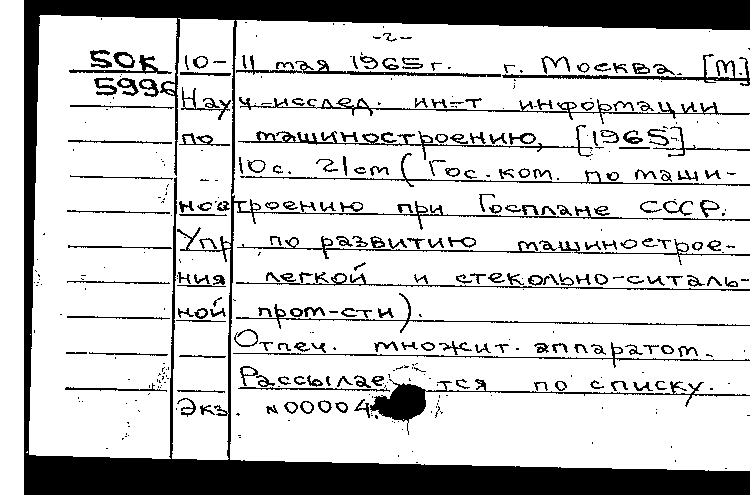 -2-
50К 10- 11 мая 1965г. г. Москва. [М.]
5996 Науч-исслед. ин-т информации
по машиностроению, [1965]
10с. 21см (Гос.ком. по маши-
ностроению при Госплане СССР.
Упр. по развитию машинострое-
ния легкой и стекольно-ситаль-
ной пром-сти).
Отпеч. множит. аппаратом.
Рассылается по списку.
Экз. №00004.